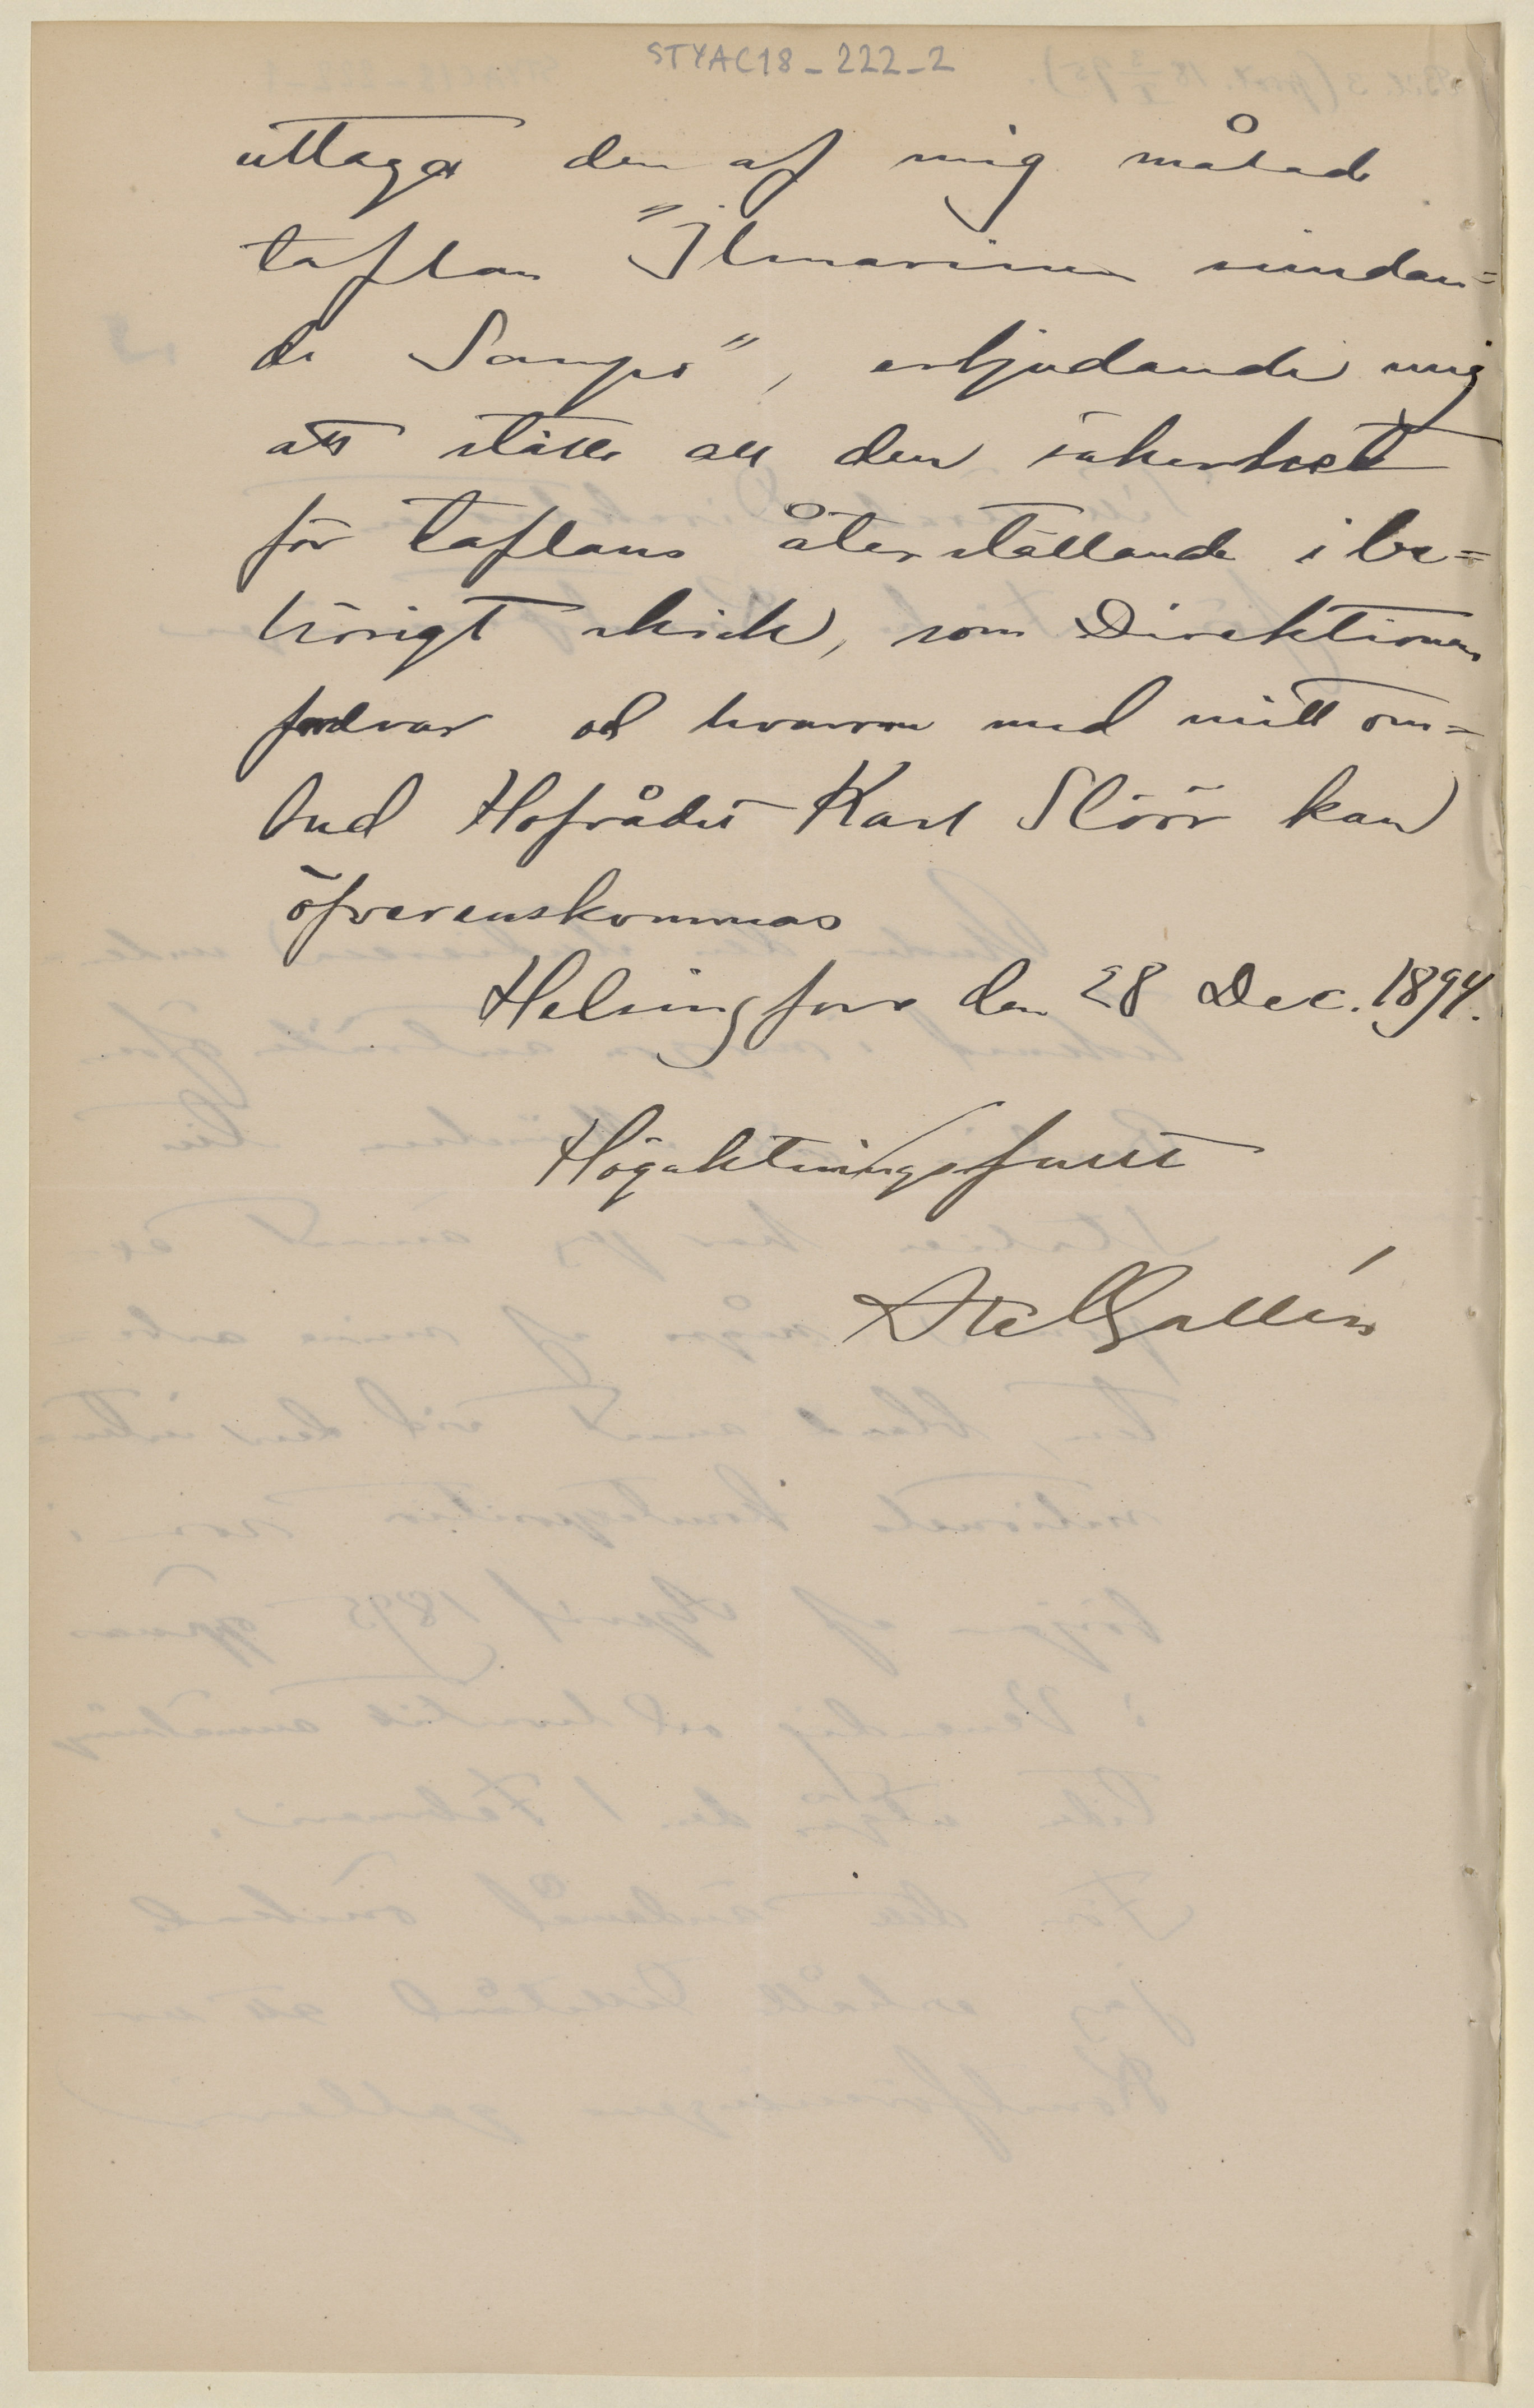 STYAC18_222_2
uttaga den af mig målade
taflan "Ilmarinen smidan=
de Sampo", erbjudande mig
att ställa all den säkerhet
för taflans återställande i be=
hörigt skick, som Direktionen
fordrar och hvarom med mitt om=
bud Hofrådet Karl Slöör kan
öfverenskommas
Helsingfors den 28 Dec. 1894.
Högaktningsfullt
Axel Gallén